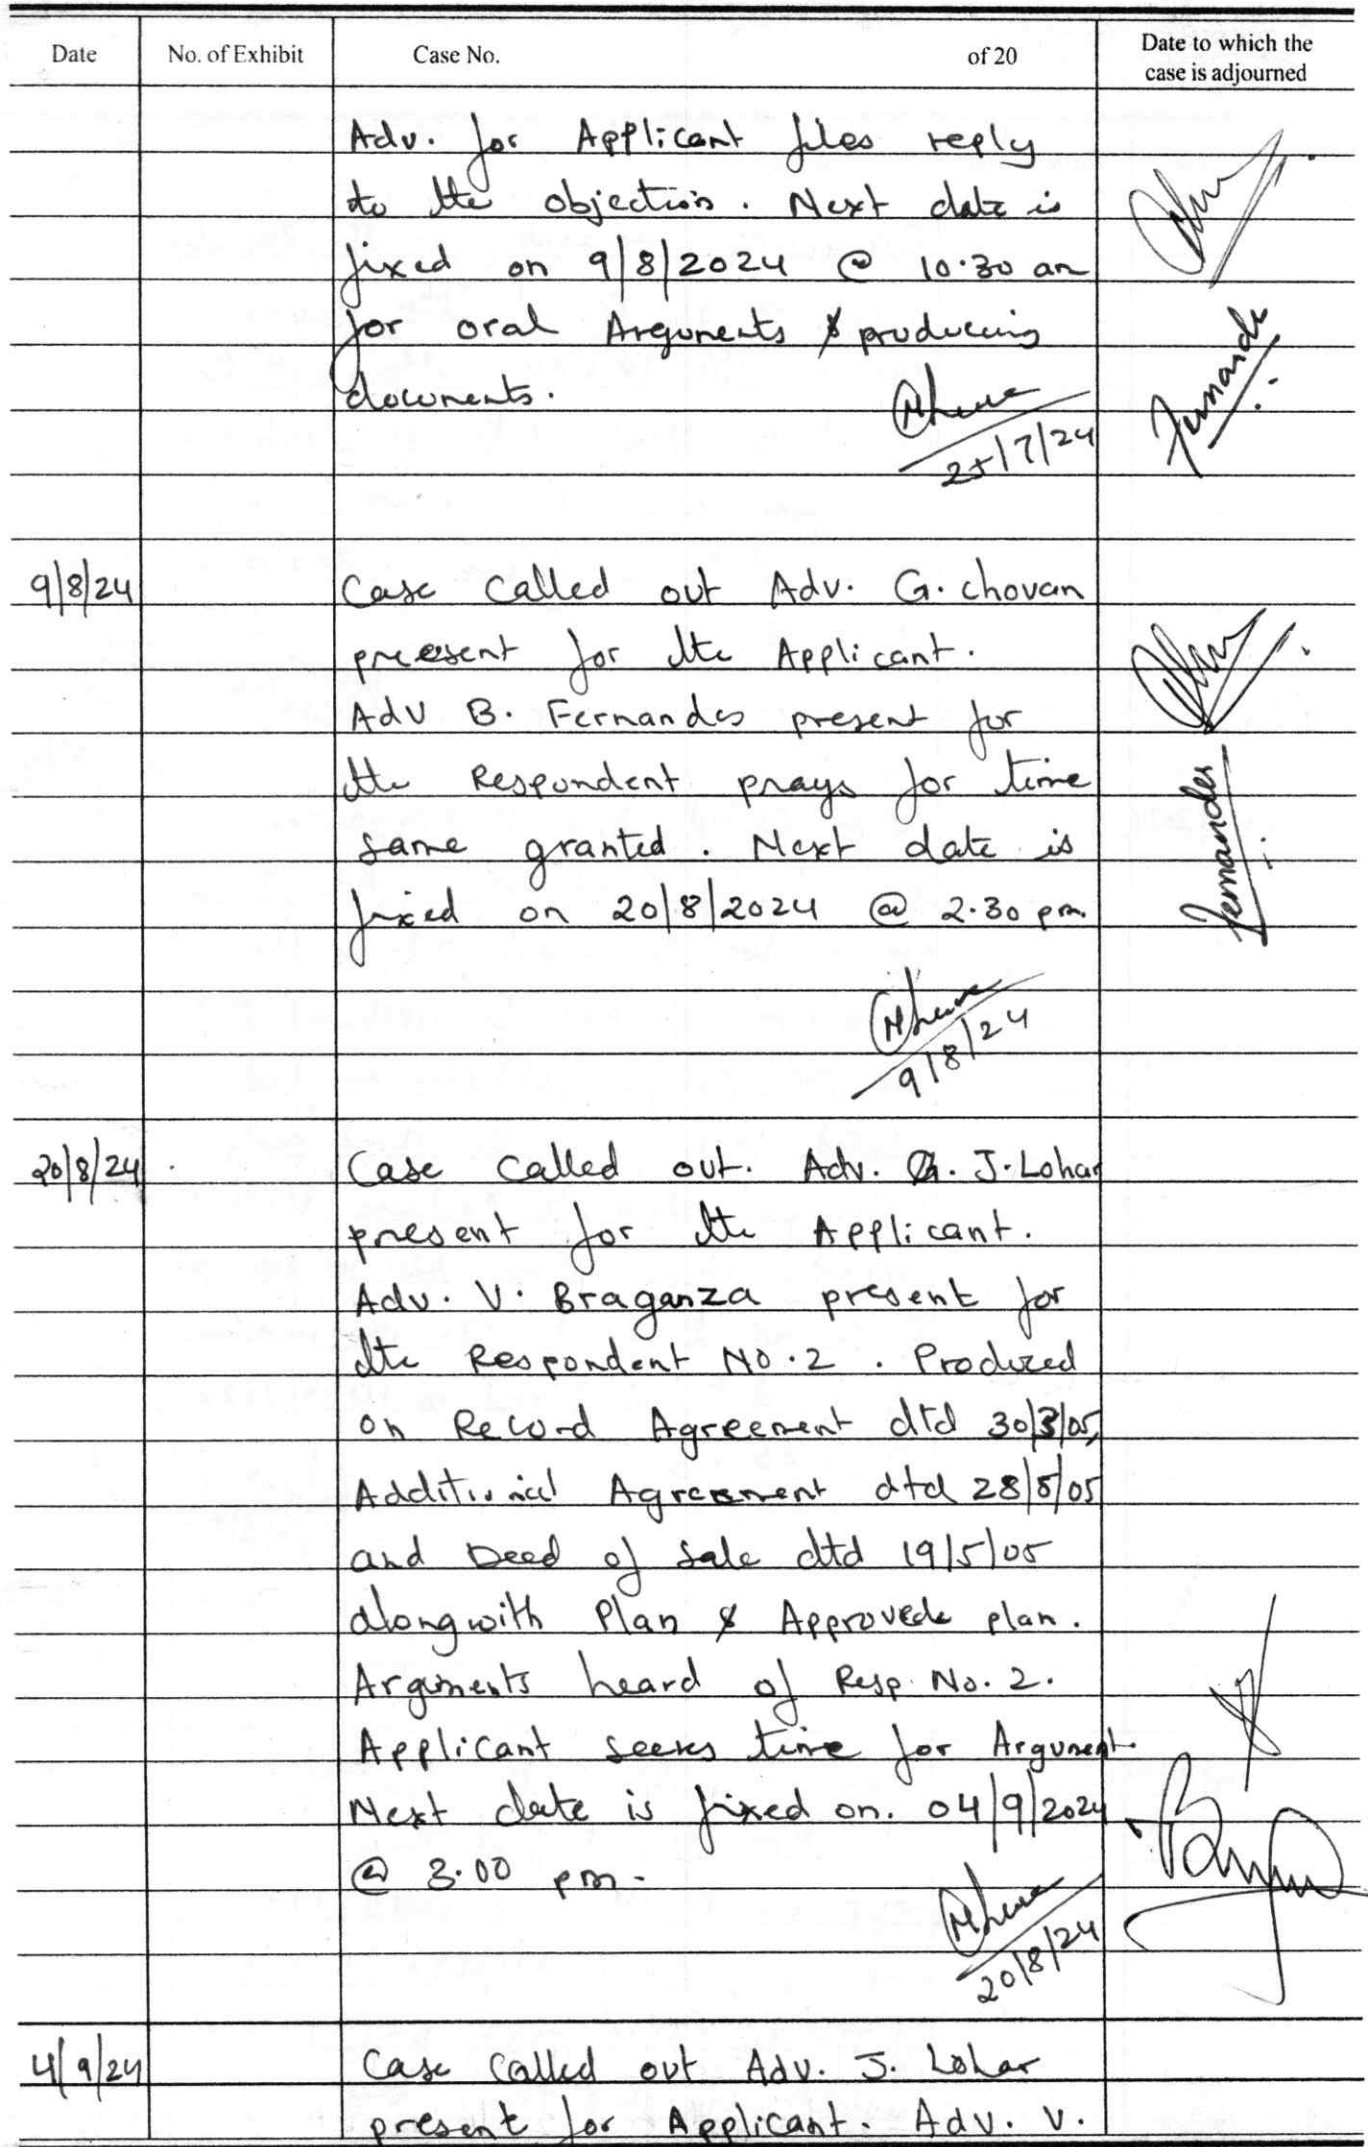 Date No. of Exhibit Case No. of 20 Date to which the
case is adjourned
Adv. for Applicant files reply
to the objection. Next date is
fixed on 9/8/2024 @ 10.30 am
for oral Arguments & producing
documents.
Fernandes
25/7/24
9/8/24 Case called out Adv. G. chovan
present for the Applicant.
Adv B. Fernandes present for
the Respondent prays for time
same granted. Next date is
fixed on 20/8/2024 @ 2.30 pm.
Fernandes
9/8/24
20/8/24 Case called out. Adv. J. Lohar
present for the Applicant.
Adv. V. Braganza present for
the Respondent No. 2. Produced
on Record Agreement dtd 30/3/05,
Additional Agreement dtd 28/5/05
and Deed of Sale dtd 19/5/05
alongwith Plan & Approved plan.
Arguments heard of Resp. No. 2.
Applicant seeks time for Argument.
Next date is fixed on. 04/9/2024
@ 3.00 pm.
20/8/24
4/9/24 Case called out Adv. J. Lohar
present for Applicant. Adv. V.